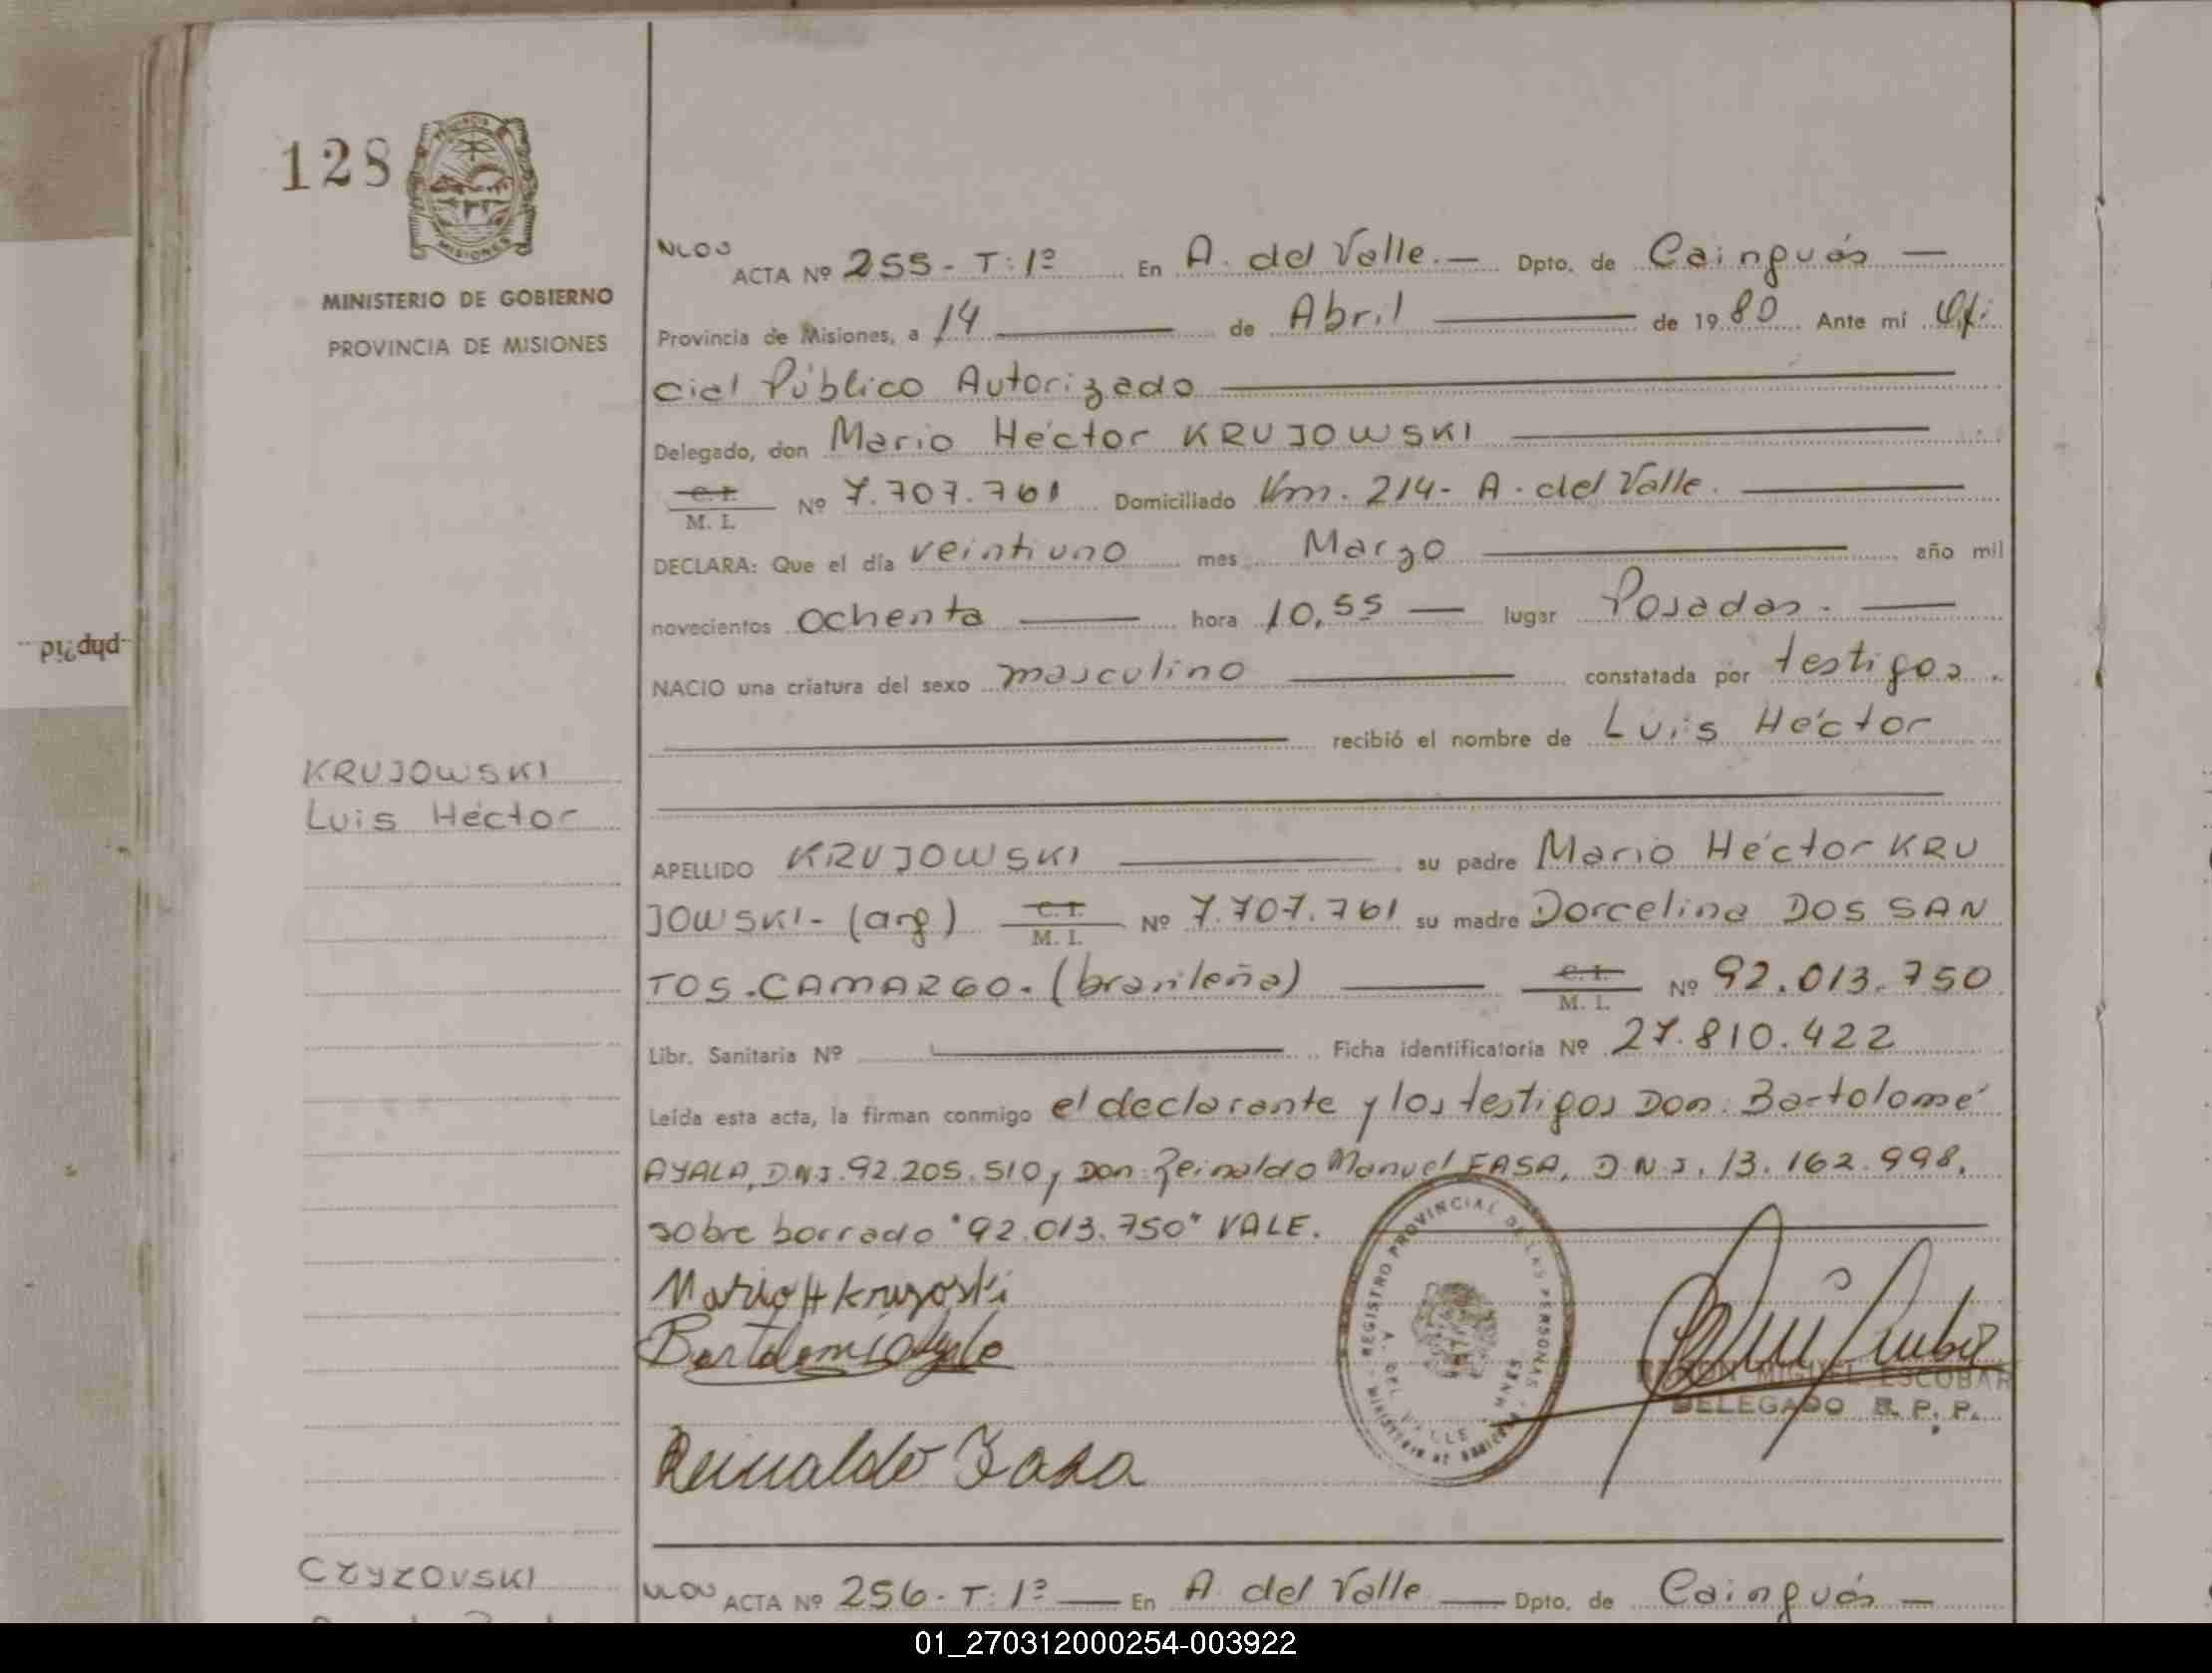 128
PROVINCIA
MISIONES
MINISTERIO DE GOBIERNO
PROVINCIA DE MISIONES
ACTA Nº 255- T: 1º En A. del Valle.— Dpto. de Cainguás —
Provincia de Misiones, a 14 de Abril de 1980 Ante mí Ofi
cial Público Autorizado
Delegado, don Mario Héctor KRUJOWSKI
C. I.
M. I. Nº 7.707.761 Domiciliado Km. 214- A. del Valle.
DECLARA: Que el día veintiuno mes Marzo año mil
novecientos ochenta hora 10,55 — lugar Posadas.
NACIO una criatura del sexo masculino constatada por testigos.
recibió el nombre de Luis Héctor
KRUJOWSKI
Luis Héctor
APELLIDO KRUJOWSKI su padre Mario Héctor KRU
JOWSKI- (arg) C. I. M. I. Nº 7.707.761 su madre Dorcelina DOS SAN
TOS.CAMARGO. (brasileña) C. I. M. I. Nº 92.013.750
Libr. Sanitaria Nº Ficha identificatoria Nº 27.810.422
Leída esta acta, la firman conmigo el declarante y los testigos Don. Bartolomé
AYALA, D.N.I. 92.205.510 y Don Reinaldo Manuel FASA, D.N.I. 13.162.998.
sobre borrado "92.013.750" VALE.
Mario H
Reinaldo Fasa
REGISTRO PROVINCIAL DE LAS PERSONAS
A. DEL VALLE MNES
MINISTERIO DE
MIGUEL ESCOBAR
DELEGADO R. P. P.
CZYZOVSKI
ACTA Nº 256- T: 1º — En A. del Valle — Dpto. de Cainguás —
01_270312000254-003922